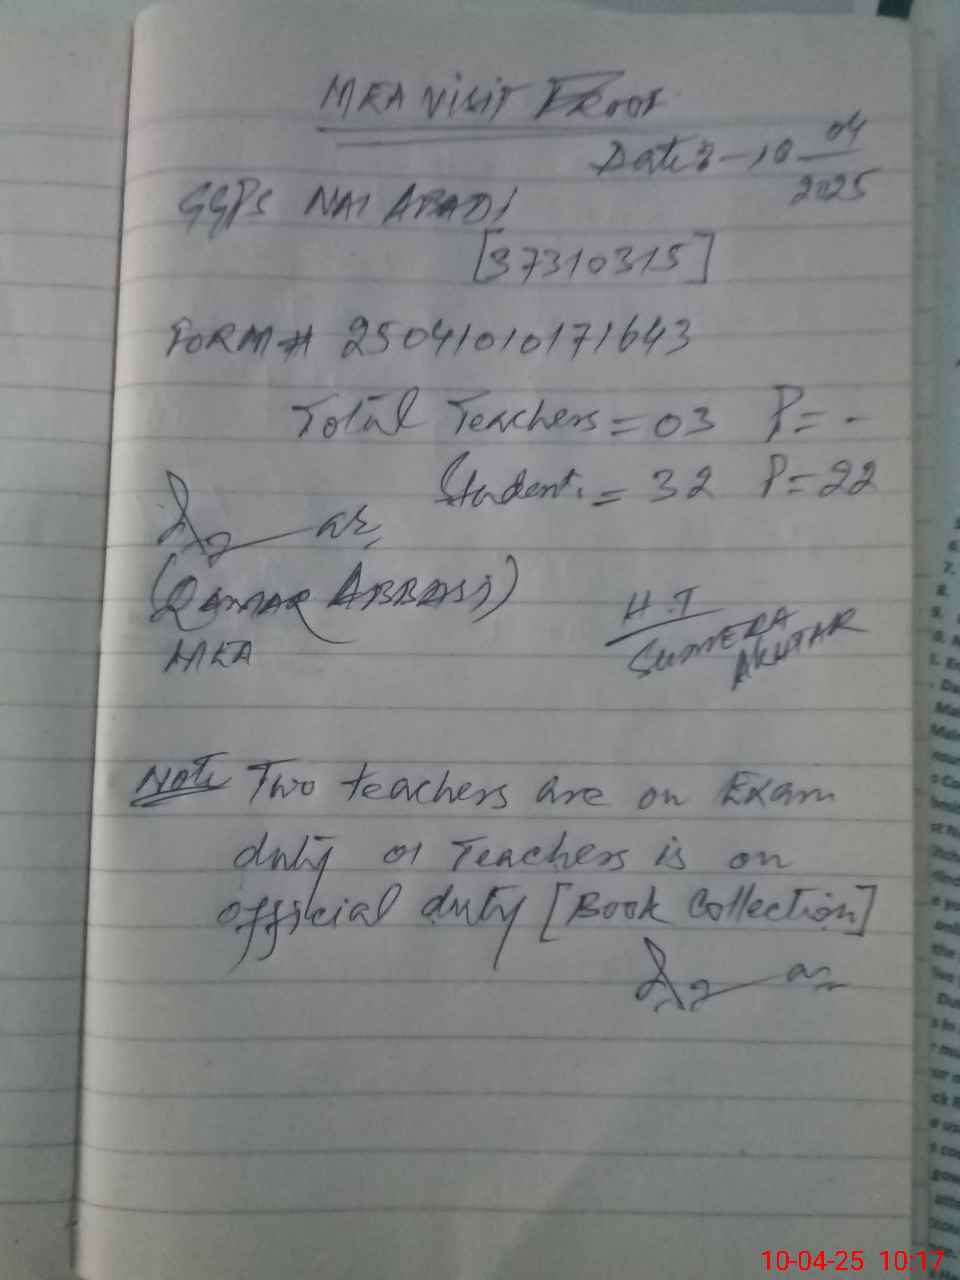 MEA Visit Proof
Date:-10-04
2025
GGPS NAI ABADI
[37310315]
FORM# 25041010171643
Total Teachers = 03 P= -
Student. = 32 P=22
(QAMAR ABBASI)
MEA
H.T
SUMERA
AKHTAR
Note Two teachers are on Exam
duty 01 Teachers is on
official duty [Book Collection]
10-04-25 10:17